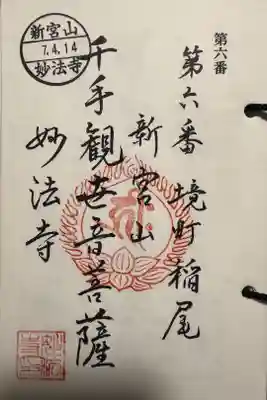 第六番
第六番 境町稲尾
新宮山
千手観世音菩薩
妙法寺
新宮山
7.4.14
妙法寺